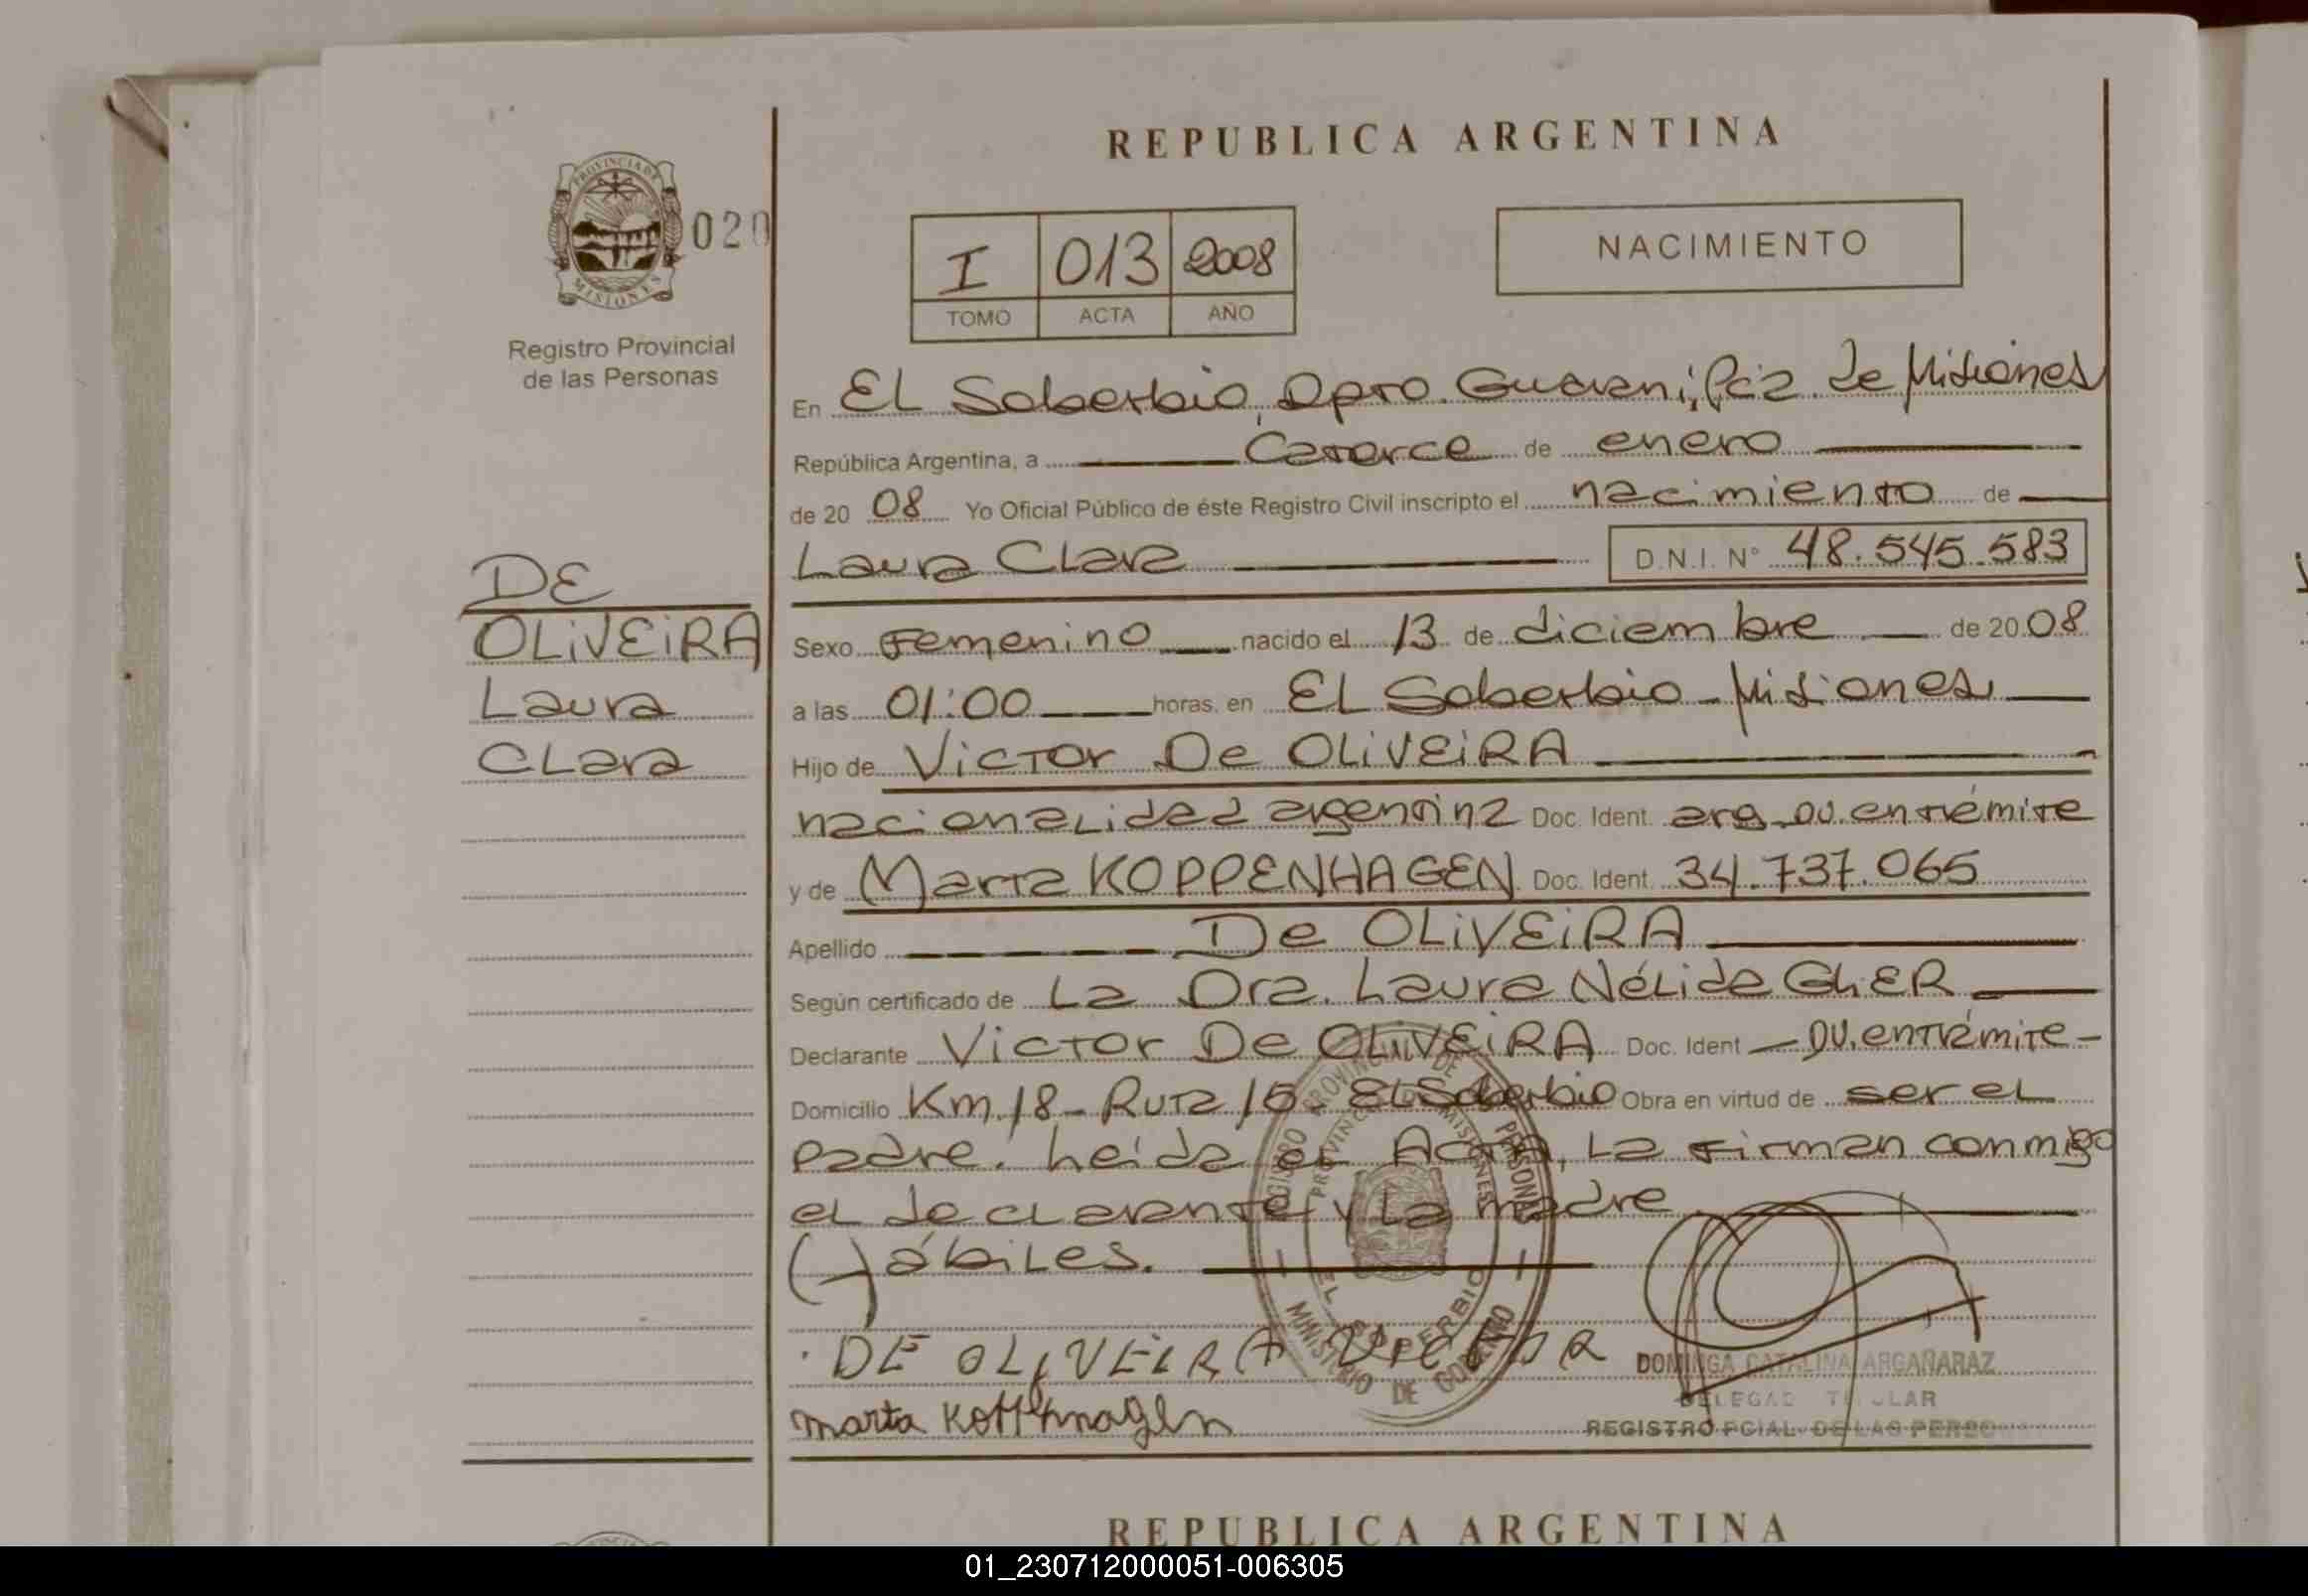 REPUBLICA ARGENTINA
PROVINCIA DE
MISIONES
020
I 013 2008
TOMO ACTA AÑO
NACIMIENTO
Registro Provincial
de las Personas
En EL Soberbio, Dpto. Guarani, Pcia. de Misiones
República Argentina, a Catorce de enero
de 20 08 Yo Oficial Público de éste Registro Civil inscripto el nacimiento de
Laura Clara D.N.I. N° 48.545.583
DE
OLiVEiRA
Laura
CLara
Sexo Femenino nacido el 13 de diciembre de 20 08
a las 01:00 horas. en EL Soberbio - Misiones
Hijo de Victor De OLiVEiRA
nacionalidad argentina Doc. Ident. arg. DU. en trámite
y de Marta KOPPENHAGEN Doc. Ident. 34.737.065
Apellido De OLiVEiRA
Según certificado de La Dra. Laura NéLida GLiER
Declarante Victor De OLiVEiRA Doc. Ident - DU. en trámite -
Domicilio Km. 18 - Ruta 15 - EL Soberbio Obra en virtud de ser eL
padre. Leída eL Acta, La firman conmigo
eL decLarante y La madre
( ) ábiLes.
DE OLiVEiRA VICTOR
marta Koppenhagen
REGISTRO PROVINCIAL DE PERSONAS
PROVINCIA MISIONES
EL SOBERBIO
MINISTERIO DE GOBIERNO
DOMINGA CATALINA ARGAÑARAZ
DELEGAD TITULAR
REGISTRO PCIAL. DE LAS PERSO
REPUBLICA ARGENTINA
01_230712000051-006305